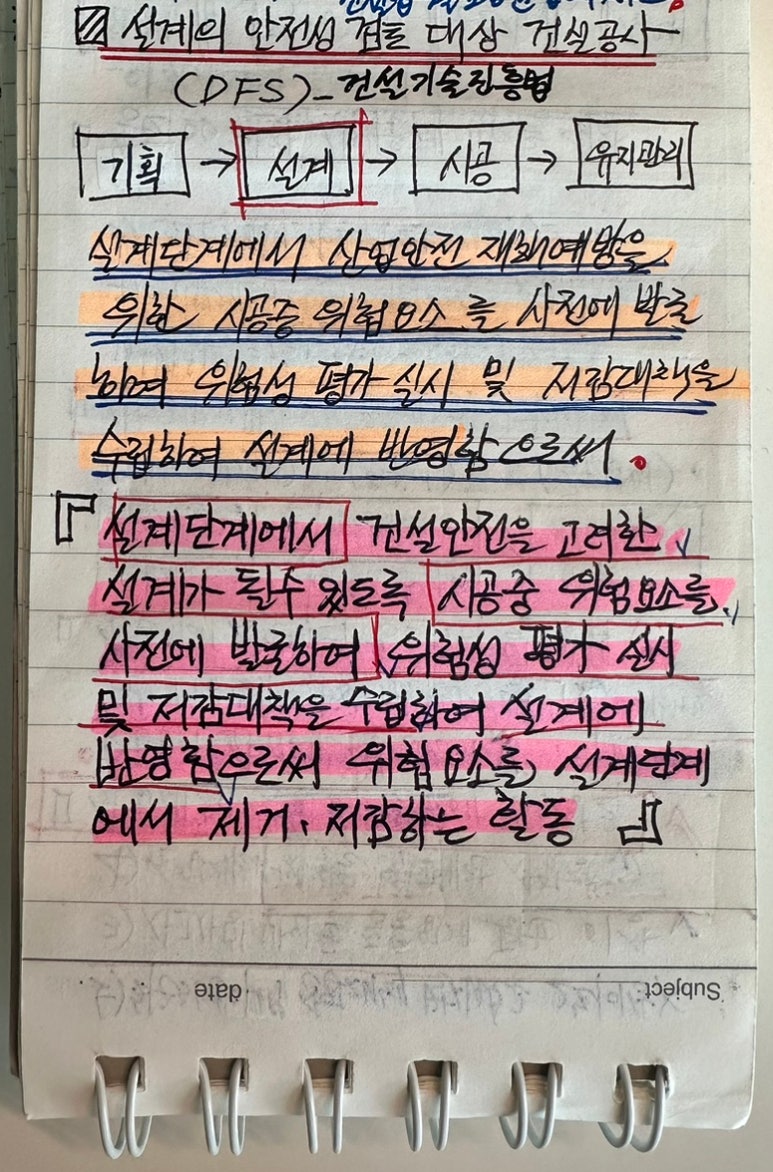 설계의 안전성 검토 대상 건설공사
(DFS) - 건설기술진흥법
기획 → 설계 → 시공 → 유지관리
설계단계에서 산업안전 재해예방을
위한 시공중 위험요소를 사전에 발굴
하여 위험성 평가 실시 및 저감대책을
수립하여 설계에 반영함으로써.
『설계단계에서 건설안전을 고려한
설계가 될수 있도록 시공중 위험요소를
사전에 발굴하여 위험성 평가 실시
및 저감대책을 수립하여 설계에
반영함으로써 위험요소를 설계단계
에서 제거, 저감하는 활동』
Subject date